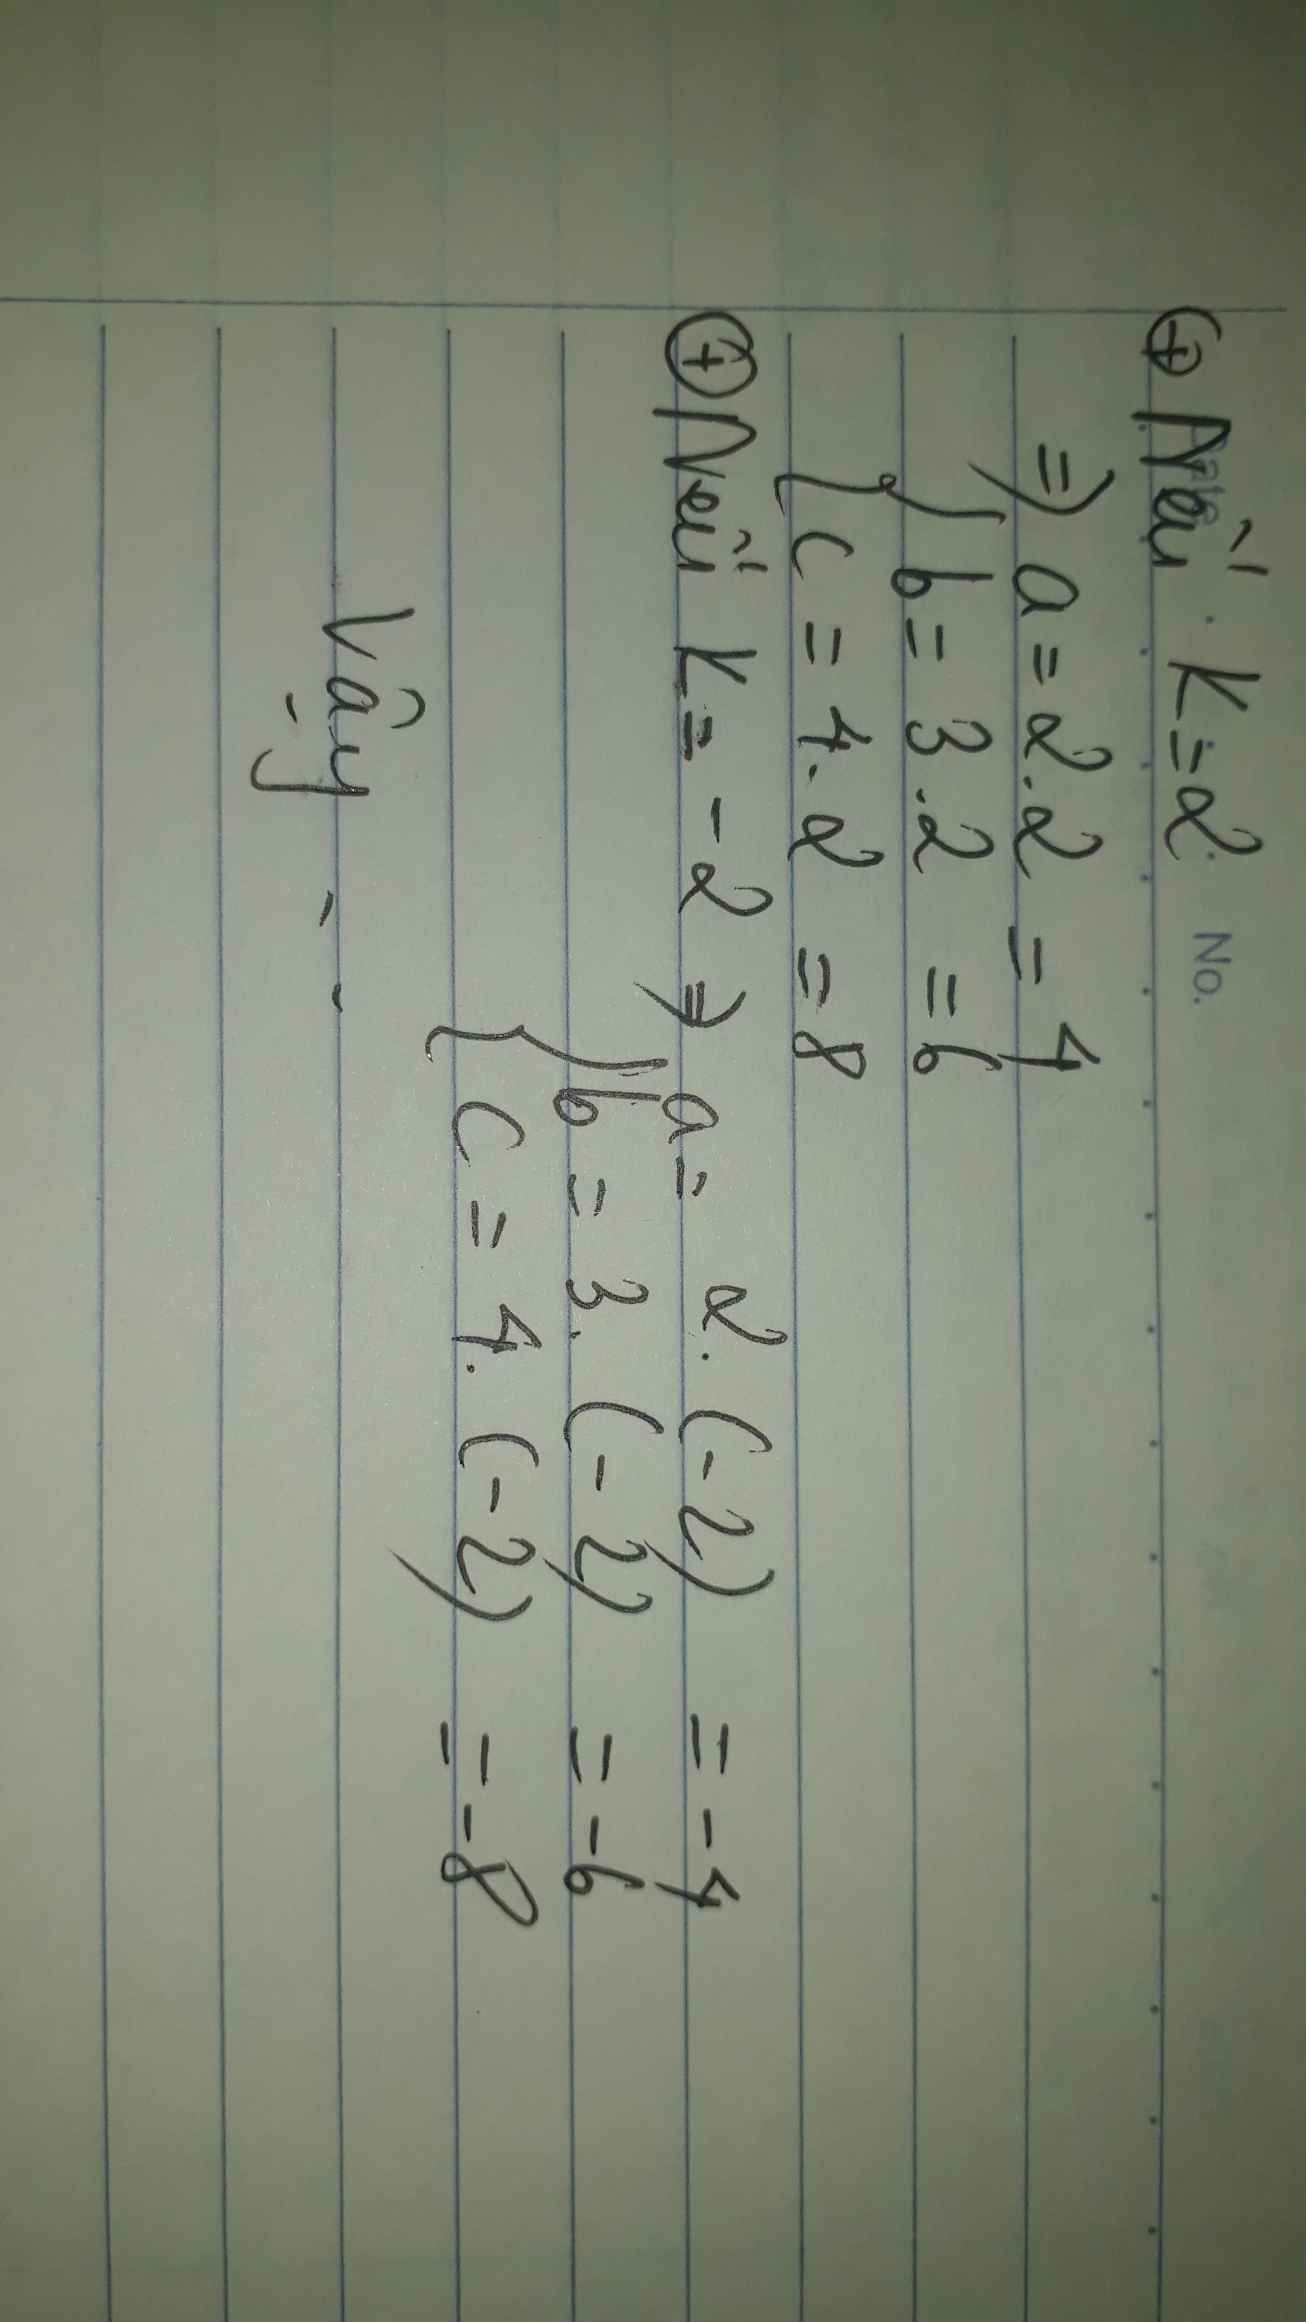 No.
⊕ Nếu k = 2
=> { a = 2.2 = 4
b = 3.2 = 6
c = 4.2 = 8
⊕ Nếu k = -2 => { a = 2.(-2) = -4
b = 3.(-2) = -6
c = 4.(-2) = -8
Vậy - -